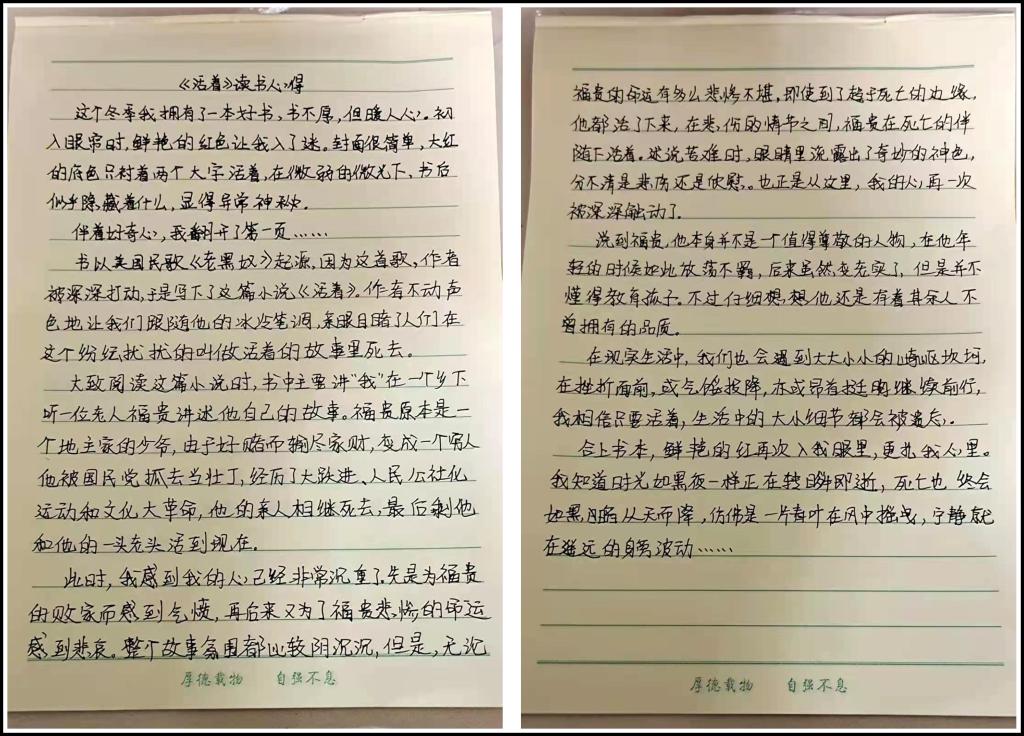 《活着》读书心得
这个冬季我拥有了一本好书,书不厚,但暖人心。初
入眼帘时,鲜艳的红色让我入了迷。封面很简单,大红
的底色只衬着两个大字活着,在微弱的微光下,书后
似乎隐藏着什么,显得异常神秘。
伴着好奇心,我翻开了第一页……
书以美国民歌《老黑奴》起源,因为这首歌,作者
被深深打动,于是写下了这篇小说《活着》。作者不动声
色地让我们跟随他的冰冷笔调,亲眼目睹了人们在
这个纷纷扰扰的叫做活着的故事里死去。
大致阅读这篇小说时,书中主要讲“我”在一个乡下
听一位老人福贵讲述他自己的故事。福贵原本是一
个地主家的少爷,由于好赌而输尽家财,变成一个穷人
他被国民党抓去当壮丁,经历了大跃进、人民公社化
运动和文化大革命,他的亲人相继死去,最后剩他
和他的一头老头活到现在。
此时,我感到我的心已经非常沉重了。先是为福贵
的败家而感到气愤,再后来又为了福贵悲惨的命运
感到悲哀。整个故事氛围都比较阴沉沉,但是,无论
厚德载物 自强不息
福贵的命运有多么悲惨不堪,即使到了趋于死亡的边缘,
他都活了下来,在悲伤的情节之间,福贵在死亡的伴
随下活着。述说苦难时,眼睛里流露出了奇妙的神色,
分不清是悲伤还是欣慰。也正是从这里,我的心再一次
被深深触动了。
说到福贵,他本身并不是一个值得尊敬的人物,在他年
轻的时候如此放荡不羁,后来虽然变充实了,但是并不
懂得教育孩子。不过仔细想,想他还是有着其余人不
曾拥有的品质。
在现实生活中,我们也会遇到大大小小的崎岖坎坷,
在挫折面前,或气馁投降,亦或昂首挺胸继续前行,
我相信只要活着,生活中的大小细节都会被遗忘。
合上书本,鲜艳的红再次入我眼里,更扎我心里。
我知道时光如黑夜一样正在转瞬即逝,死亡也终会
如黑暗从天而降,仿佛是一片青叶在风中摇曳,宁静就
在遥远的身旁波动……
厚德载物 自强不息